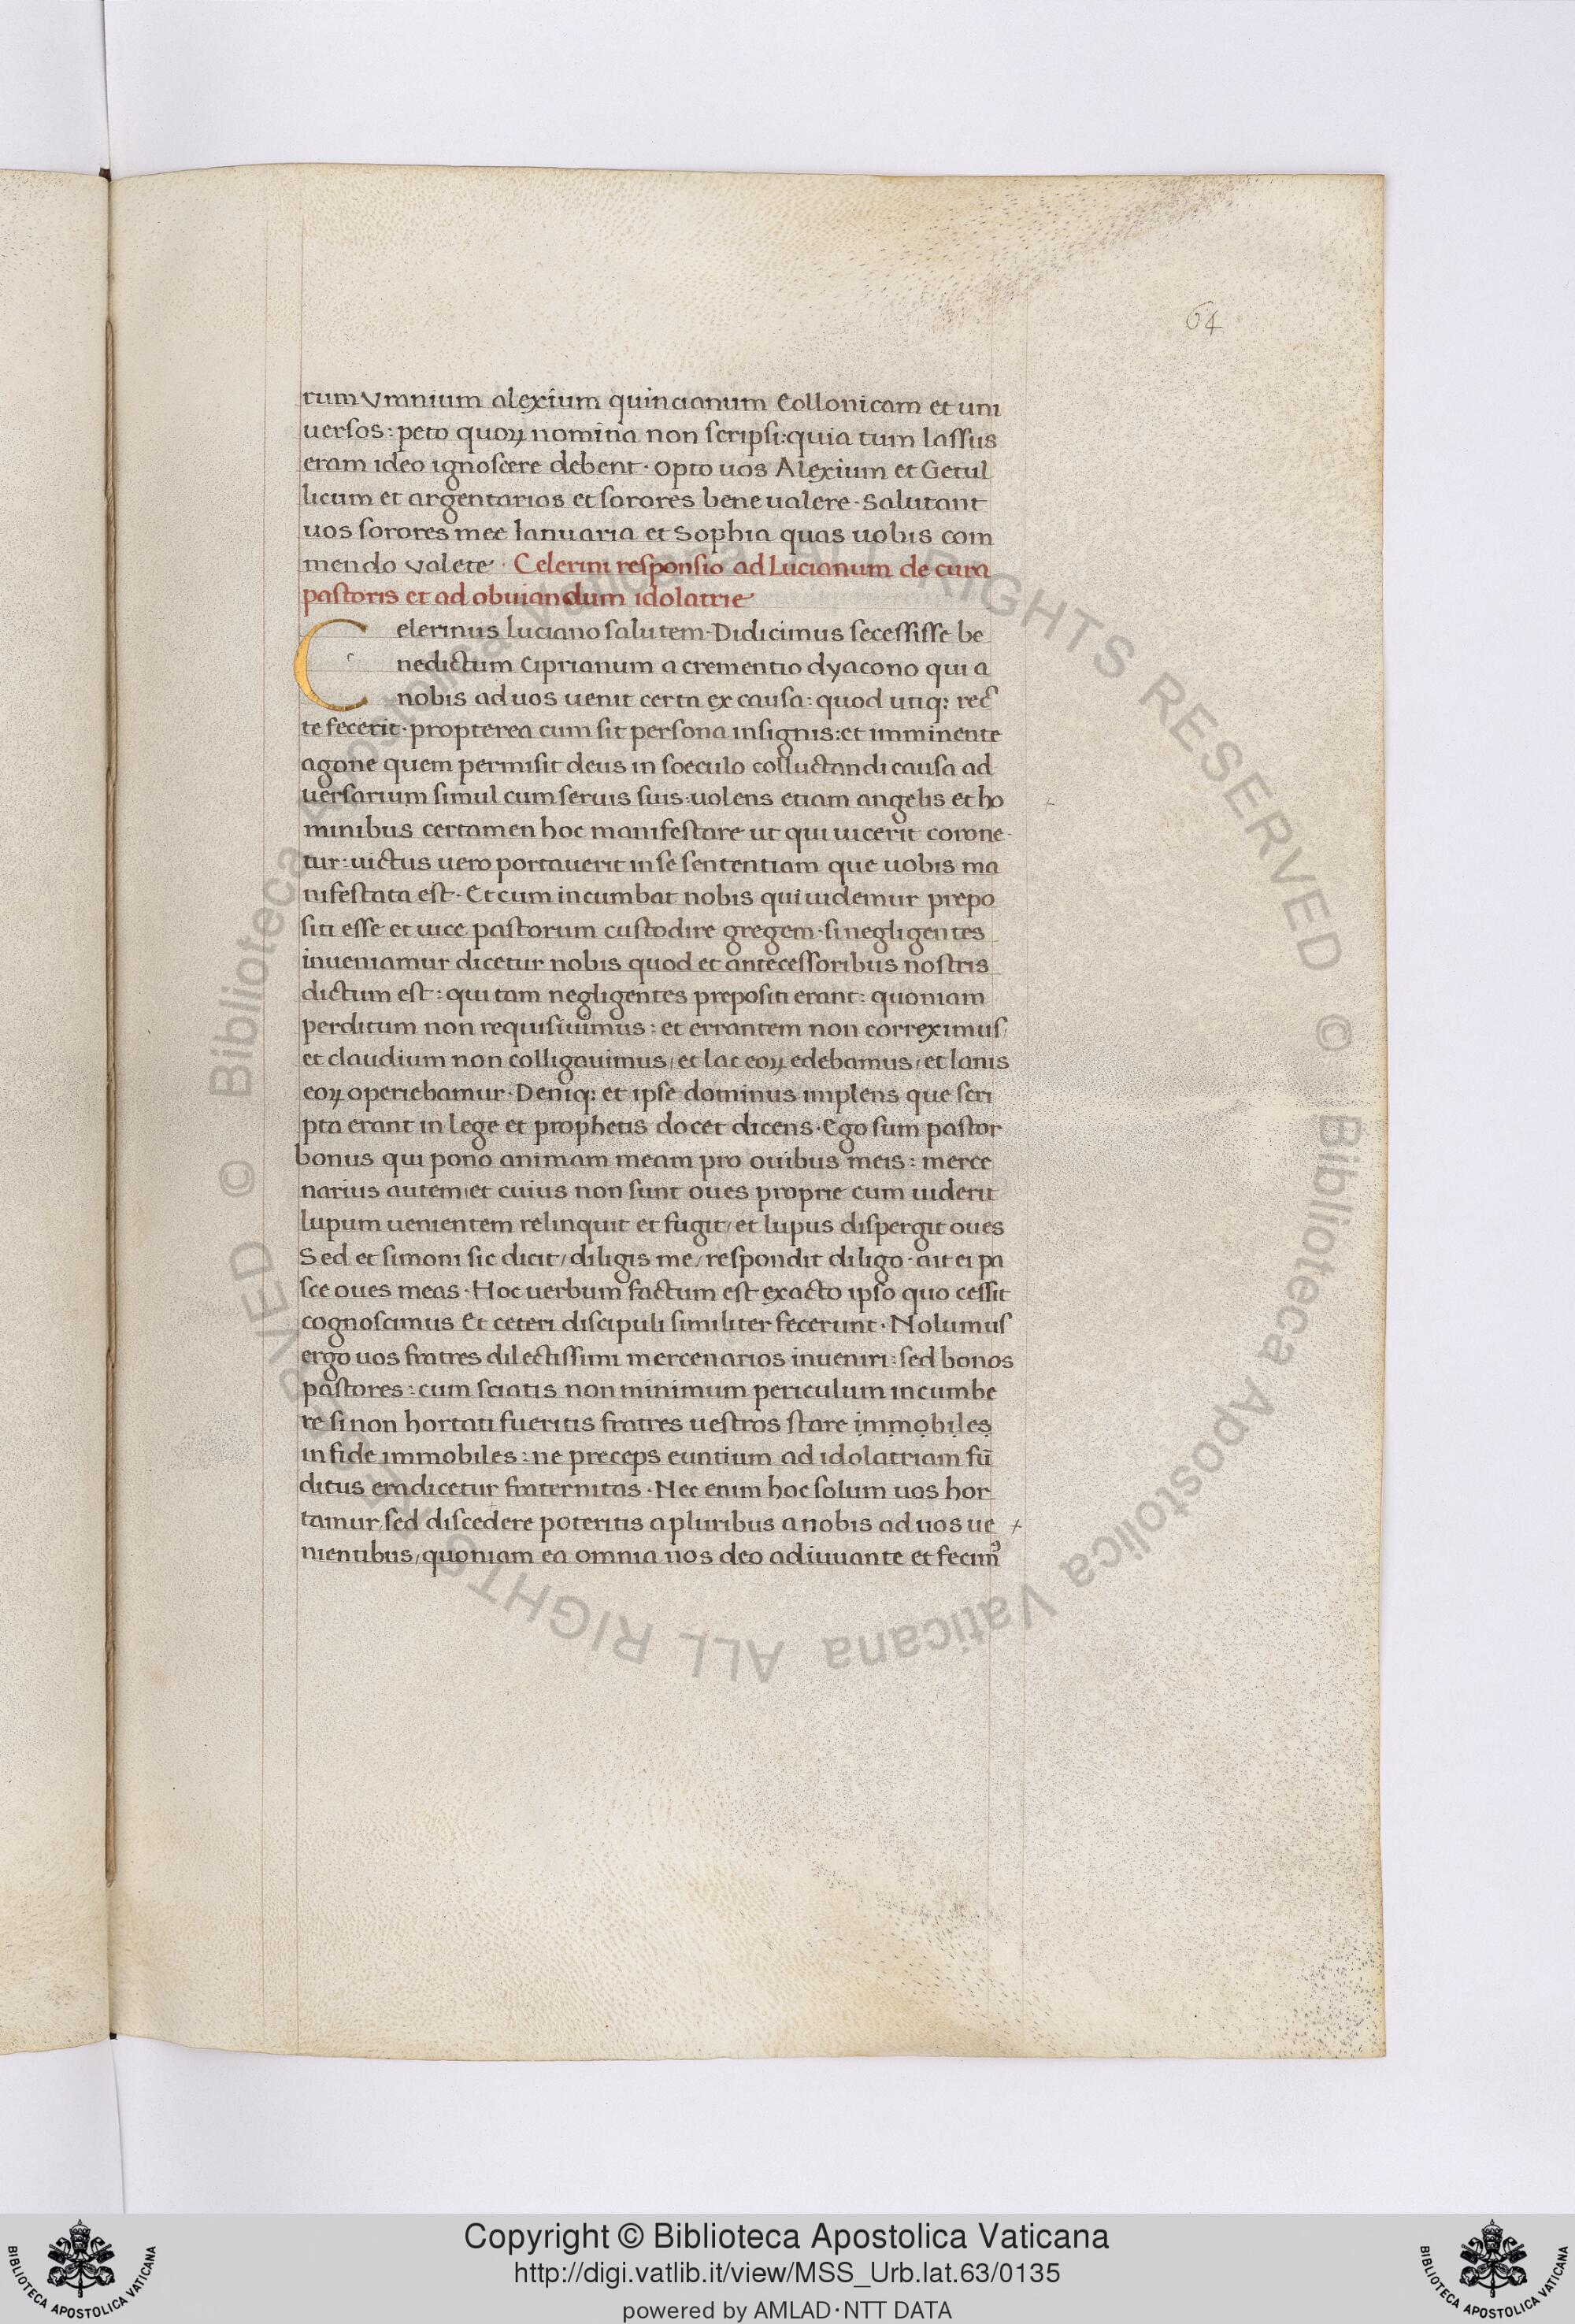 64
tum Vranium alexium quincianum Collonicam et uni
uersos: peto quoꝝ nomina non scripsi: quia tum lassus
eram ideo ignoscere debent· opto uos Alexium et Getul
licum et argentarios et sorores bene ualere· Salutant
uos sorores mee Ianuaria et Sophia quas uobis com
mendo valete· Celerini responsio ad Lucianum de cura
pastoris et ad obuiandum idolatrie
Celerinus luciano salutem· Didicimus secessisse be
nedictum Ciprianum a crementio dyacono qui a
nobis ad uos uenit certa ex causa: quod utiq; rec
te fecerit· propterea cum sit persona insignis: et imminente
agone quem permisit deus in soeculo colluctandi causa ad
uersarium simul cum seruis suis: uolens etiam angelis et ho
minibus certamen hoc manifestare ut qui uicerit corone
tur: uictus uero portauerit in se sententiam que uobis ma
nifestata est· Et cum incumbat nobis qui uidemur prepo
siti esse et uice pastorum custodire gregem· si negligentes
inueniamur dicetur nobis quod et antecessoribus nostris
dictum est: qui tam negligentes prepositi erant: quoniam
perditum non requisiuimus: et errantem non correximus/
et claudium non colligauimus/ et lac eoꝝ edebamus/ et lanis
eoꝝ operiebamur· Deniq; et ipse dominus implens que scri
pta erant in lege et prophetis docet dicens· Ego sum pastor
bonus qui pono animam meam pro ouibus meis: merce
narius autem/ et cuius non sunt oues proprie cum uiderit
lupum uenientem relinquit et fugit/ et lupus dispergit oues
Sed et simoni sic dicit/ diligis me/ respondit diligo· ait ei pa
sce oues meas· Hoc uerbum factum est exacto ipso quo cessit
cognoscimus Et ceteri discipuli similiter fecerunt· Nolumus
ergo uos fratres dilectissimi mercenarios inueniri: sed bonos
pastores: cum sciatis non minimum periculum incumbe
re si non hortati fueritis fratres uestros stare immobiles
in fide immobiles: ne preceps euntium ad idolatriam fū
ditus eradicetur fraternitas· Nec enim hoc solum uos hor
tamur/ sed discedere poteritis a pluribus a nobis ad uos ue
nientibus/ quoniam ea omnia nos deo adiuuante et fecimꝰ
© Biblioteca Apostolica Vaticana ALL RIGHTS RESERVED © Biblioteca Apostolica Vaticana ALL RIGHTS RESERVED
Copyright © Biblioteca Apostolica Vaticana
http://digi.vatlib.it/view/MSS_Urb.lat.63/0135
powered by AMLAD·NTT DATA
BIBLIOTECA APOSTOLICA VATICANA
BIBLIOTECA APOSTOLICA VATICANA